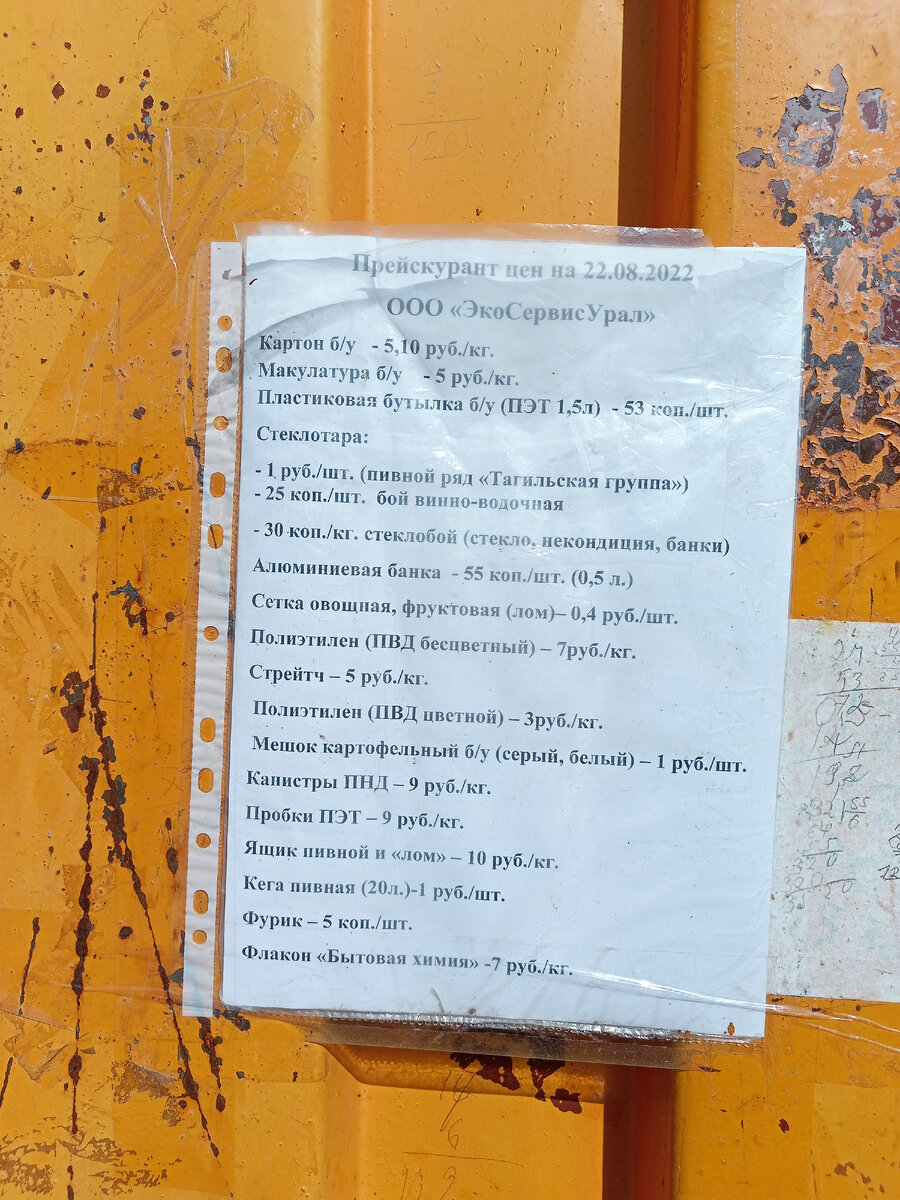 Прейскурант цен на 22.08.2022
ООО «ЭкоСервисУрал»
Картон б/у - 5,10 руб./кг.
Макулатура б/у - 5 руб./кг.
Пластиковая бутылка б/у (ПЭТ 1,5л) - 53 коп./шт.
Стеклотара:
- 1 руб./шт. (пивной ряд «Тагильская группа»)
- 25 коп./шт. бой винно-водочная
- 30 коп./кг. стеклобой (стекло, некондиция, банки)
Алюминиевая банка - 55 коп./шт. (0,5 л.)
Сетка овощная, фруктовая (лом)– 0,4 руб./шт.
Полиэтилен (ПВД бесцветный) – 7руб./кг.
Стрейтч – 5 руб./кг.
Полиэтилен (ПВД цветной) – 3руб./кг.
Мешок картофельный б/у (серый, белый) – 1 руб./шт.
Канистры ПНД – 9 руб./кг.
Пробки ПЭТ – 9 руб./кг.
Ящик пивной и «лом» – 10 руб./кг.
Кега пивная (20л.)-1 руб./шт.
Фурик – 5 коп./шт.
Флакон «Бытовая химия» -7 руб./кг.
120
53
198